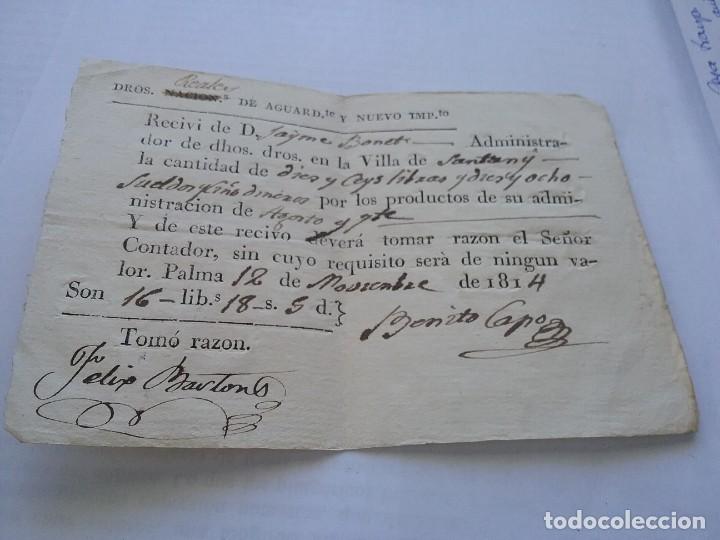 Reales
DROS. NACION.s DE AGUARD.te Y NUEVO IMP.to
Recivi de D. Jayme Bonet Administra-
dor de dhos. dros. en la Villa de Santany
la cantidad de diez y seys libras y diez y ocho
sueldos y sinco dineros por los productos de su admi-
nistracion de Agosto y 7bre
Y de este recivo deverá tomar razon el Señor
Contador, sin cuyo requisito serà de ningun va-
lor. Palma 12 de Noviembre de 1814
Son 16 lib.s 18 s. 5 d.}
Benito Capo
Tomó razon.
Felix Bartons
todocoleccion
todocoleccion.net